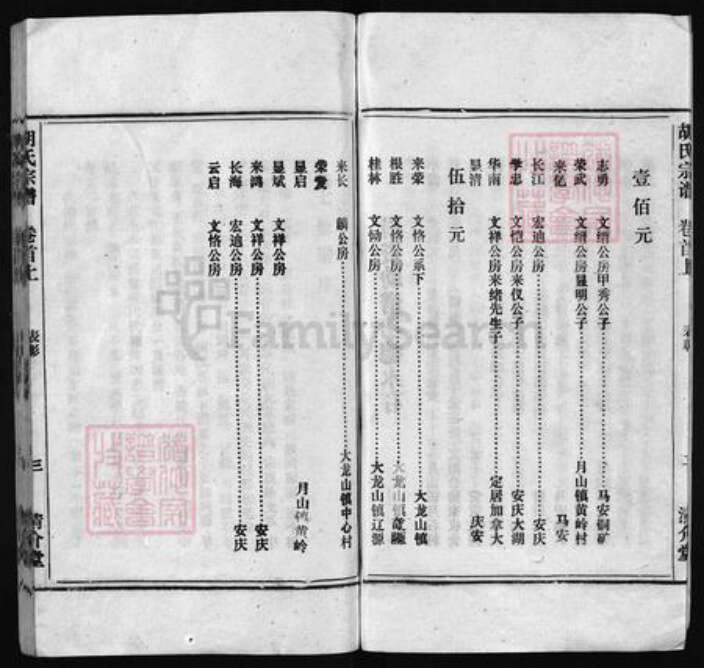 胡氏宗谱 卷首上
壹佰元
志勇 文缙公房甲秀公子……马安铜矿
荣武 文缙公房显明公子……月山镇黄岭村
来亿 马安
长江 宏迪公房……安庆
学忠 文恺公房来仪公子……安庆大湖
华南 文祥公房来绪先生子……定居加拿大
显清 庆安
伍拾元
来荣 文恪公系下……大龙山镇
根胜 文恪公房……大龙山镇
桂林 文恸公房……大龙山镇辽源
来长 麟公房……大龙山镇中心村
荣发
显启 月山镇黄岭
显斌 文祥公房
来鸿 文祥公房……安庆
长海 宏迪公房……安庆
云启 文恪公房
胡氏宗谱 卷首上 表彰 三 清介堂
FamilySearch